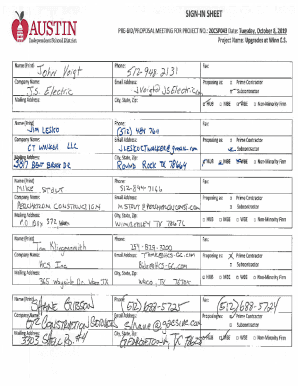 AUSTIN
Independent School District
SIGN-IN SHEET
PRE-BID/PROPOSAL MEETING FOR PROJECT NO.: 20CSP043 Date: Tuesday, October 8, 2019
Project Name: Upgrades at Winn E.S.
Name (Print) John Voigt Phone: 512-948 2131 Fax:
Company Name: J.S. Electric Email Address: JVoigt@JSElectric Proposing as: Prime Contractor
Subcontractor
Mailing Address: City, State, Zip: HUB MBE WBE Non-Minority Firm
Name (Print) Jim Lesko Phone: (512) Fax:
Company Name: CT Walker LLC Email Address: Proposing as: Prime Contractor
Subcontractor
Mailing Address: 3817 City, State, Zip: Round Rock TX 78664 HUB MBE WBE Non-Minority Firm
Name (Print) Mike Stout Phone: Fax:
Company Name: Construction Email Address: Proposing as: Prime Contractor
Subcontractor
Mailing Address: P.O. Box 372 City, State, Zip: Wimberley TX 78676 HUB MBE WBE Non-Minority Firm
Name (Print) Tom Klingensmith Phone: 254-829-3200 Fax:
Company Name: HCS Inc Email Address: Proposing as: Prime Contractor
Subcontractor
Mailing Address: 365 Wayside Dr. Waco TX City, State, Zip: Waco, TX HUB MBE WBE Non-Minority Firm
Name (Print) Shane Gibson Phone: (512)688-5725 Fax: (512)688-5724
Company Name: Construction Services Email Address: Proposing as: Prime Contractor
Subcontractor
Mailing Address: 3303 Shell Rd #4 City, State, Zip: Georgetown, TX HUB MBE WBE Non-Minority Firm